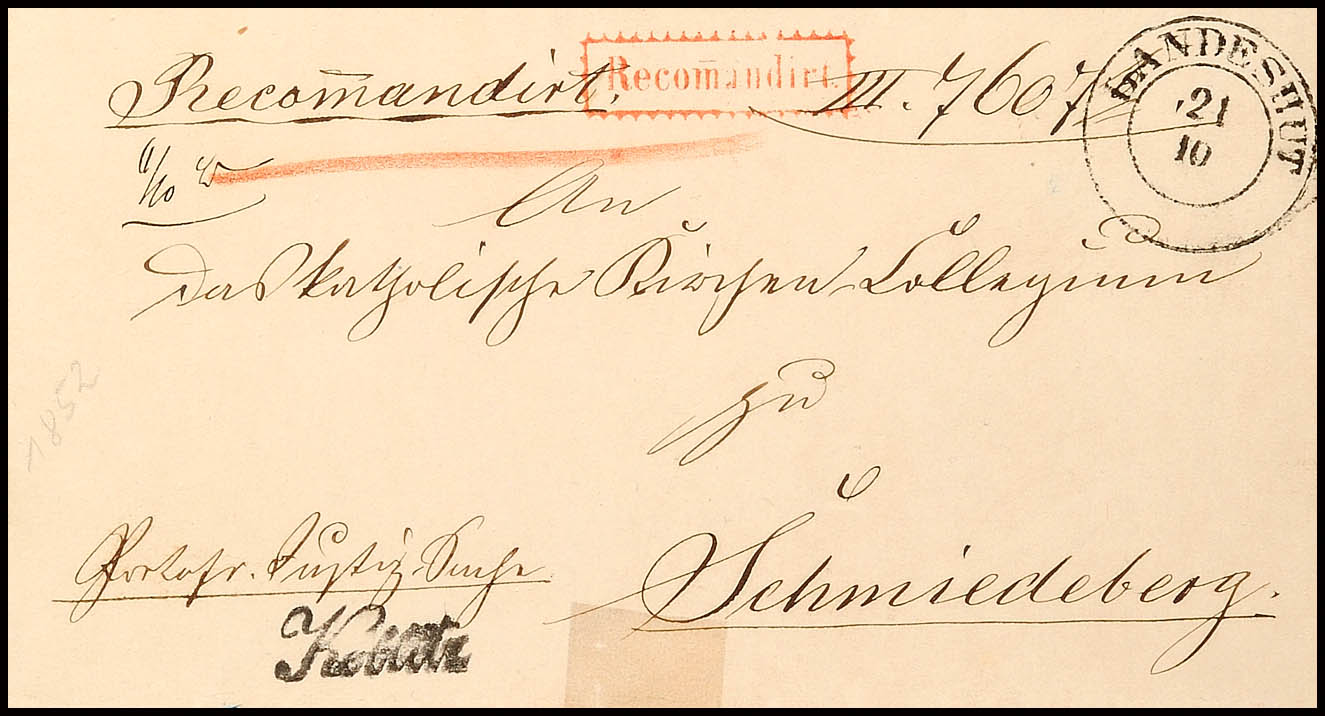 Recom̄andirt. Recom̄andirt. III. 7607
LANDESHUT
21
10
An
das katholische Kirchen Collegium
zu
1852
Schmiedeberg.
Portofr. Justiz Sache